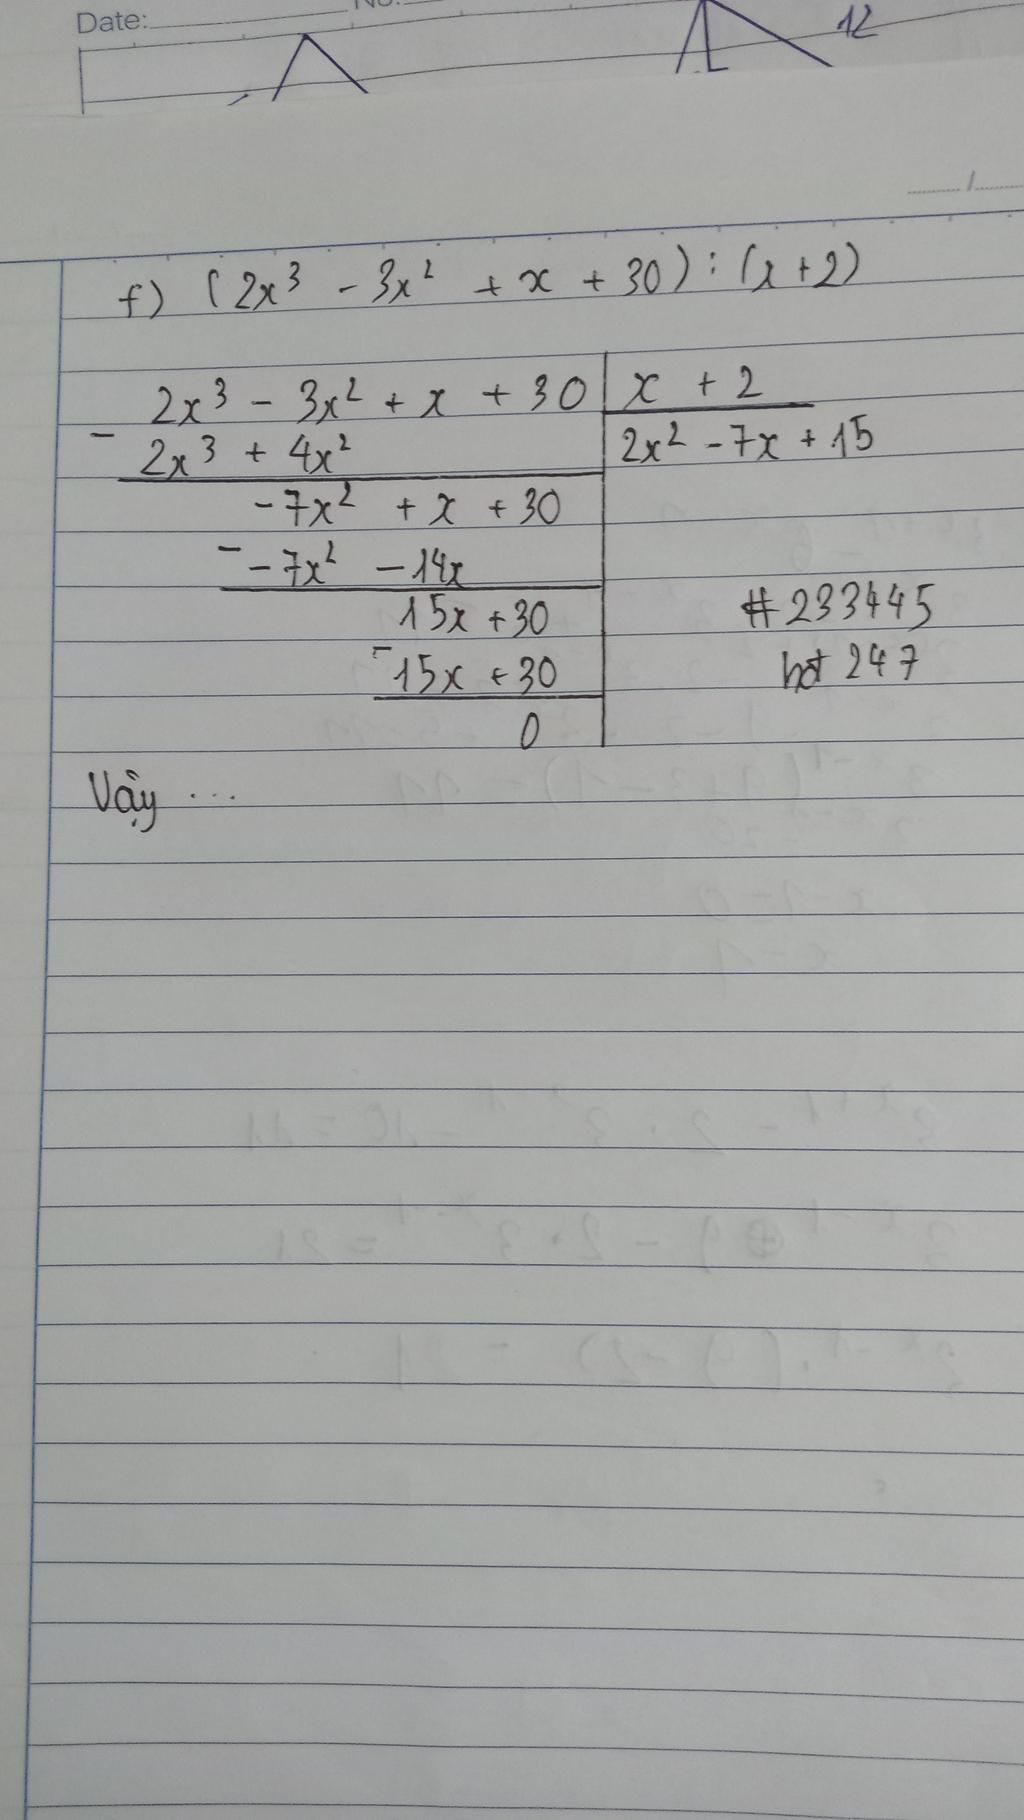 Date:
No.
12
f) (2x³ - 3x² + x + 30) : (x + 2)
2x³ - 3x² + x + 30 | x + 2
- 2x³ + 4x² | 2x² - 7x + 15
-7x² + x + 30
- -7x² - 14x
15x + 30
- 15x + 30
0
#233445
hot 247
Vậy ...